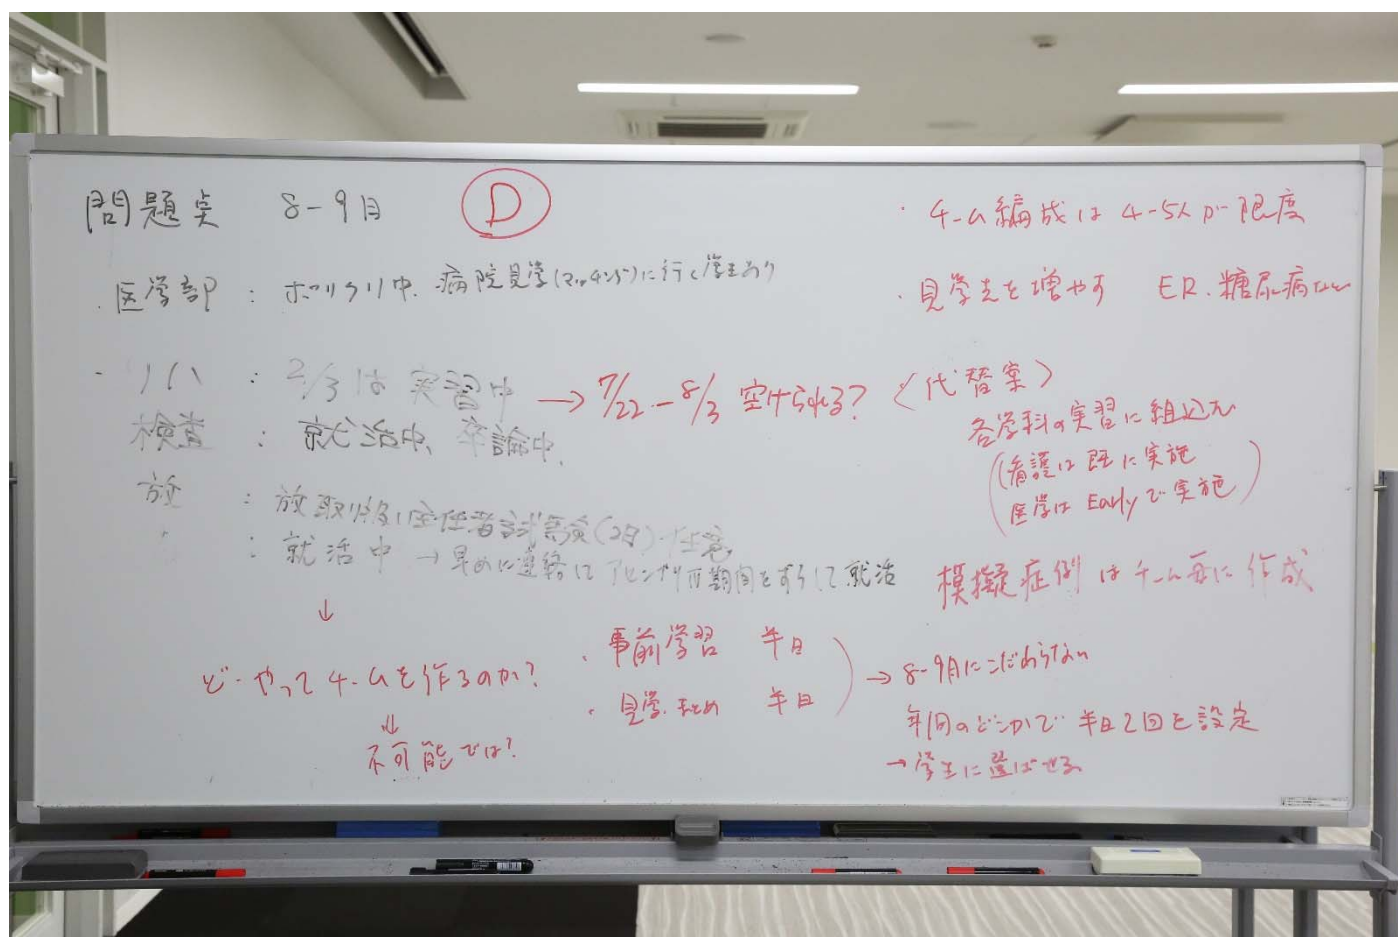 問題点 8-9月 D
・医学部 : ポリクリ中、病院見学(マッチング)に行く学生あり
・リハ : 2/3は実習中 → 7/22-8/3 空けられる?
検査 : 就活中、卒論中、
放 : 放取扱主任者試験(2日)任意
: 就活中 → 早めに連絡して 期間をずらして就活
↓
どーやってチームを作るのか?
⇓
不可能では?
・事前学習 半日
・見学、まとめ 半日
→ 8-9月にこだわらない
年間のどこかで 半日2回を設定
→ 学生に選ばせる
・チーム編成は 4-5人が限度
・見学先を増やす ER、糖尿病など
〈代替案〉
各学科の実習に組込む
(看護は既に実施
医学はEarlyで実施)
模擬症例はチーム毎に作成